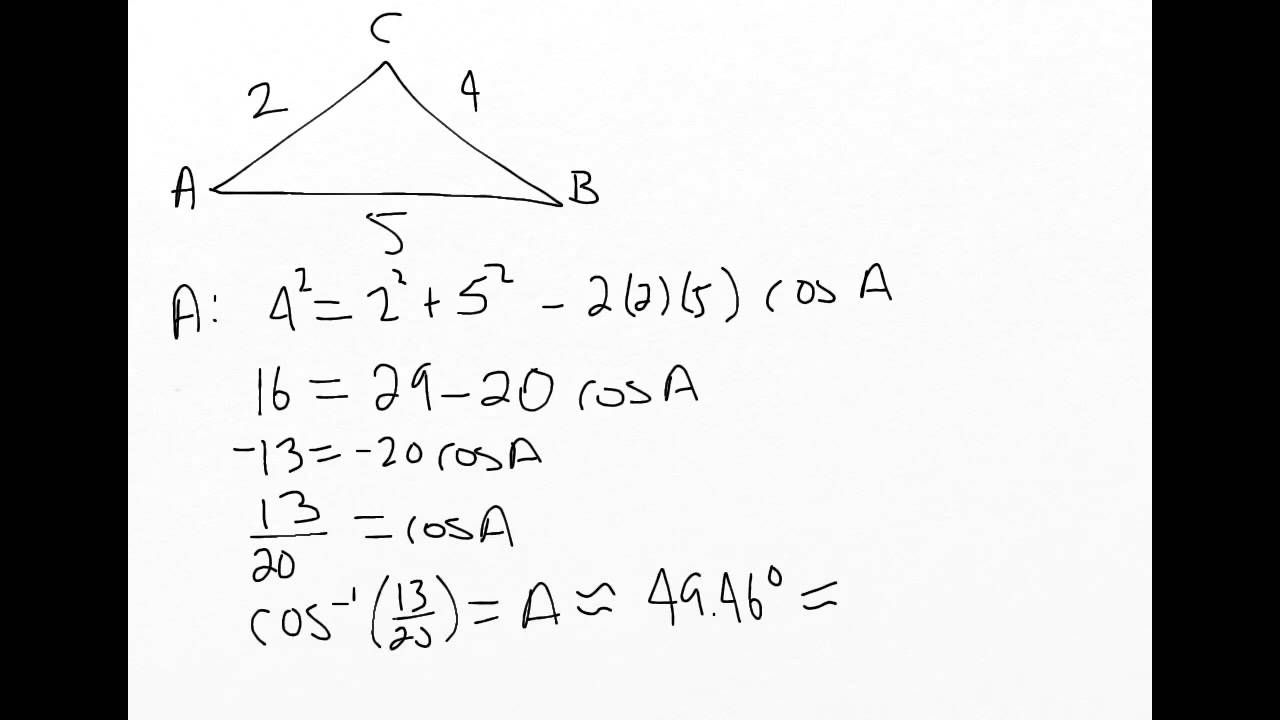 C
2 4
A B
5
A: 4² = 2² + 5² - 2(2)(5) cos A
16 = 29 - 20 cos A
-13 = -20 cos A
13/20 = cos A
cos⁻¹(13/20) = A ≈ 49.46° ≈